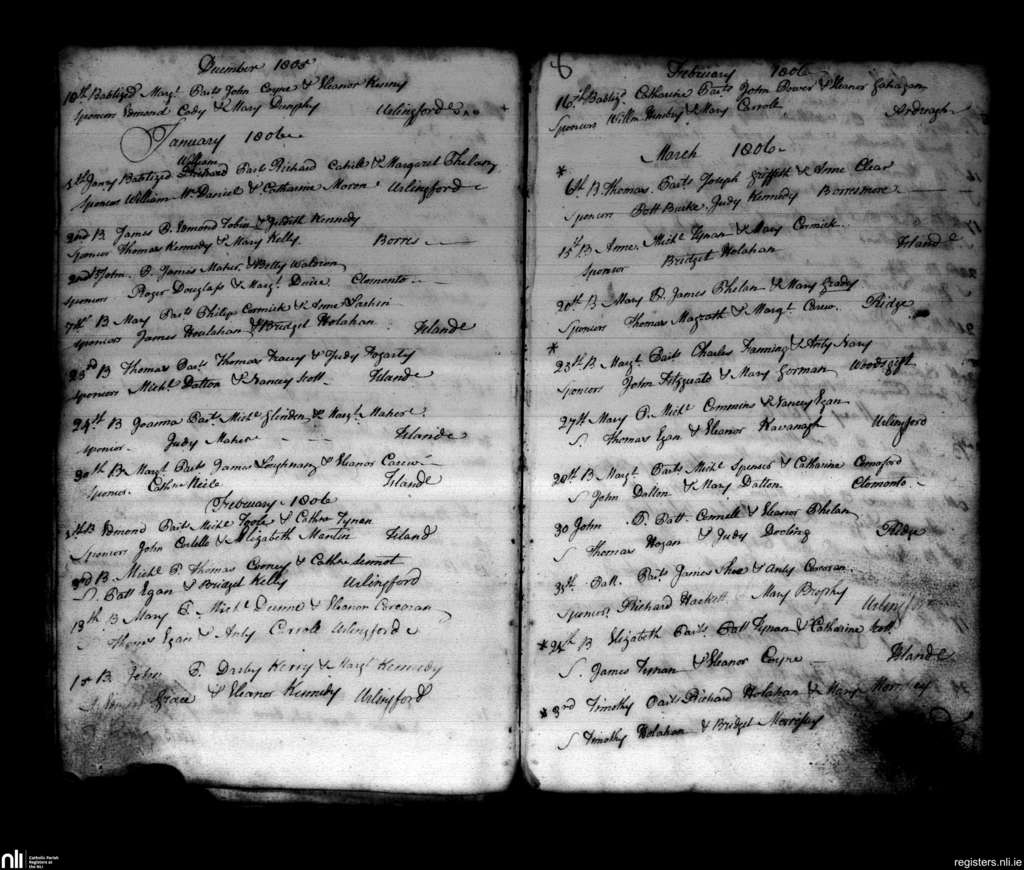 December 1805
18th Babtized Margt Parts John Coyne & Eleanor Kenny
Sponcors Edmond Cody & Mary Dunphy Urlingford
January 1806
William
1st Janry Babtized Parts Richard Cahill & Margaret Phelan
Sponcors William McDaniel & Catharine Moron Urlingford
2nd B James P. Edmond Tobin & Judith Kennedy
Sponcor Thomas Kennedy & Mary Kelly Borres
2nd John P. James Maher & Betty Waldron
Sponcors Roger Douglass & Margt Clomonto
7th B Mary Parts Philip Cormick & Anne
Sponcors James Houlahan & Bridget Holahan Islande
23rd B Thomas Parts Thomas Tracey & Judy Fogarty
Sponcors Michl Dalton & Nancey Scott Islande
24th B Joanna Parts Michl & Margt Maher
Sponcor Judy Maher Islande
30th B Margt Parts James Loughnan & Eleanor Carew
Sponcor Cathne Islande
February 1806
B Edmond Parts Michl Toole & Cathne Tynan
Sponcors John Costello & Elizabeth Mantin Island
3rd B. Michl P. Thomas Cooney & Cathne
S. Patt Egan & Bridget Kelly Urlingford
13th B Mary P. Michl Dunne & Eleanor Corcoran
S Thomas Egan & Anty Carroll Urlingford
B John P. Darby Kerry & Margt Kennedy
S. Grace & Eleanor Kennedy Urlingford
8
February 1806
16th Babtizd Catharine Parts John Power & Eleanor
Sponcors Willm & Mary Carroll
March 1806
* 6th B. Thomas Parts Joseph Griffith & Anne Clear
Sponcors Patt Burke, Judy Kennedy Borresmore
15th B Anne. Michl Tynan & Mary Cormick
Sponcor Bridget Holahan Island
20th B Mary P. James Phelan & Mary Grady
Sponcors Thomas Magrath & Margt Carew Ridge
* 23th B Margt Parts Charles Fanning & Anty
Sponcors John Fitzgerald & Mary Gorman Woodsgift
27th Mary P. Michl Commins & Nancey Egan
S. Thomas Egan & Eleanor Kavanagh Urlingford
28th B Margt Parts Michl Spencer & Catharine
S John Dalton & Mary Dalton Clomonto
30 John P. Patt Connell & Eleanor Phelan
S Thomas Hogan & Judy Dooling Ridge
Patt. Parts James Shee & Anty Corcoran
Sponcors Richard Hackett Mary Brophy Urlingford
* 24th B Elizabeth Parts Patt Tynan & Catharine
S. James Tynan & Eleanor Coyne Islande
* 3rd Timothy Parts Richard Holahan & Mary
S Timothy Holahan & Bridget Morrissy
nli
Catholic Parish
Registers at
the NLI
registers.nli.ie